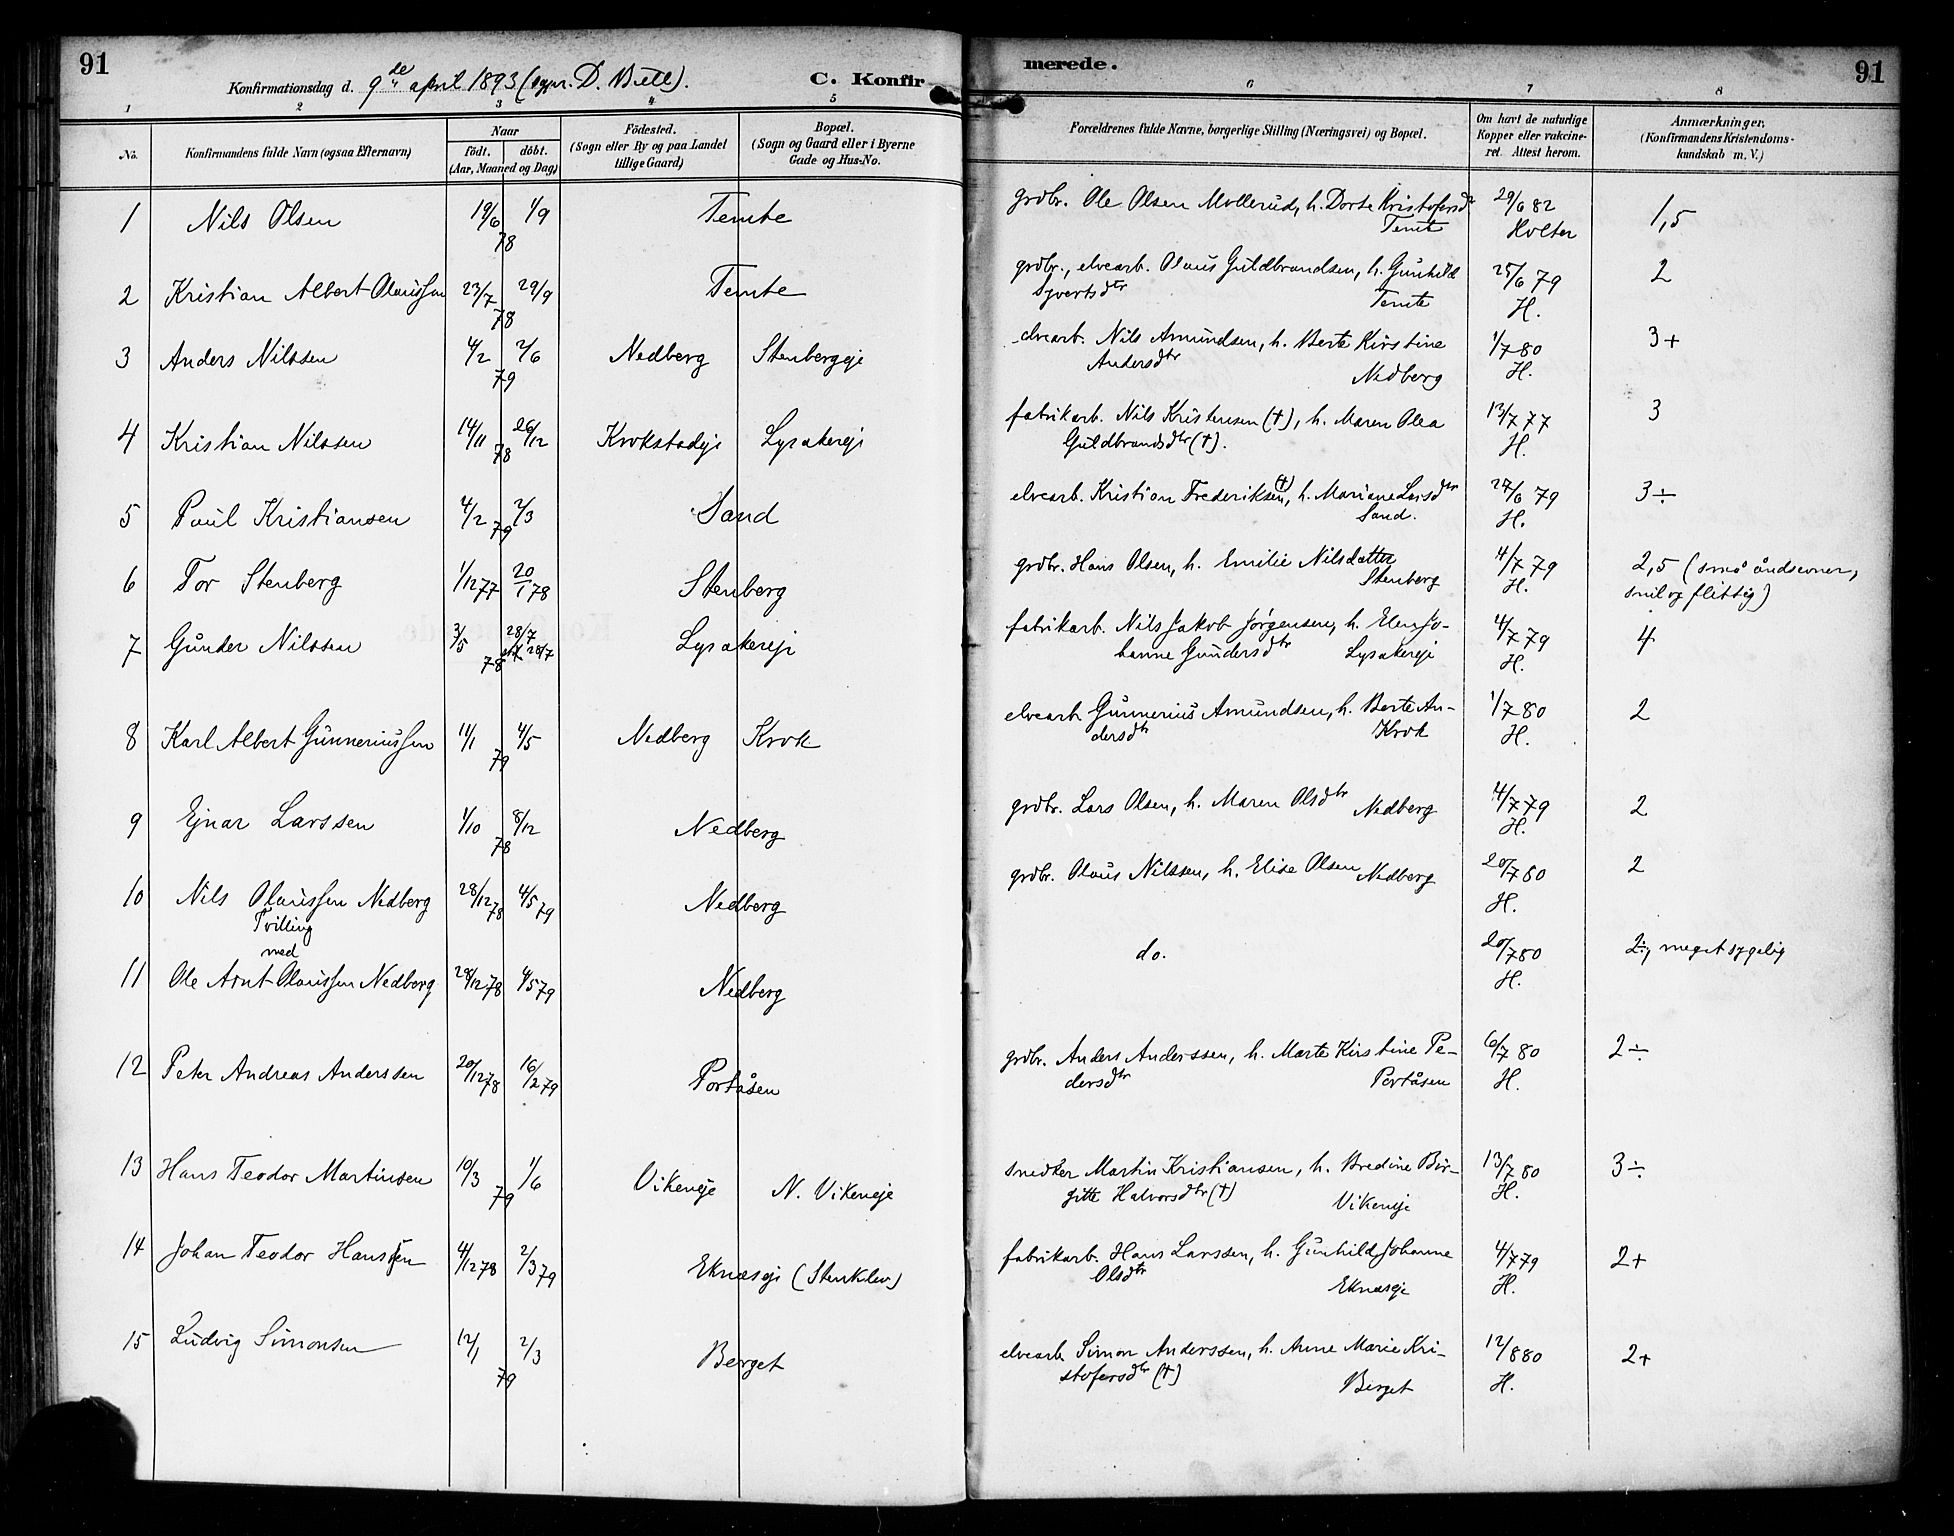 91
Konfirmationsdag d. 9de april 1893 (sogpr. D. Bull).
C. Konfir
merede.
91
1 2 3 4 5 6 7 8
No.
Konfirmandens fulde Navn (ogsaa Efternavn)
Naar
födt. döbt.
(Aar, Maaned og Dag)
Födested.
(Sogn eller By og paa Landet
tillige Gaard)
Bopæl.
(Sogn og Gaard eller i Byerne
Gade og Hus-No.
Forældrenes fulde Navne, borgerlige Stilling (Næringsvei) og Bopæl.
Om havt de naturlige
Kopper eller vakcine-
ret. Attest herom.
Anmærkninger,
(Konfirmandens Kristendoms-
kundskab m. V.)
1 Nils Olsen 19/6 78 1/9 Temte grdbr. Ole Olsen Mollerud, h. Dorte Kristofersdr 29/6 82 1,5
Temte Holter
2 Kristian Albert Olaussen 23/7 78 29/9 Temte grdbr., elvearb. Olaus Guldbrandsen, h. Gunhild 25/6 79 2
Syvertsdtr Temte H.
3 Anders Nilssen 4/2 79 2/6 Nedberg Stenbergeje elvearb. Nils Amundsen, h. Berte Kirstine 1/7 80 3+
Andersdtr H.
Nedberg
4 Kristian Nilssen 14/11 78 26/12 Krokstadeje Lysakereje fabrikarb. Nils Kristensen (†), h. Maren Olea 13/7 77 3
Guldbrandsdtr (†). H.
5 Paul Kristiansen 4/2 79 2/3 Sand elvearb. Kristian Frederiksen (†), h. Mariane Larsdtr 27/6 79 3÷
Sand. H.
6 Tor Stenberg 1/12 77 20/1 78 Stenberg grdbr. Hans Olsen, h. Emilie Nilsdatter 4/7 79 2,5 (små åndsevner,
Stenberg H. snil og flittig)
7 Gunder Nilssen 3/5 78 28/7 Lysakereje fabrikarb. Nils Jakob Jørgensen, h. Elen Jo- 4/7 79 4
hanne Gundersdtr Lysakereje H.
8 Karl Albert Gunneriussen 11/1 79 4/5 Nedberg Krok elvearb. Gunnerius Amundsen, h. Berte An- 1/7 80 2
dersdtr Krok H.
9 Ejnar Larssen 1/10 78 8/12 Nedberg grdbr. Lars Olsen, h. Maren Olsdtr Nedberg 4/7 79 2
H.
10 Nils Olaussen Nedberg 28/12 78 4/5 79 Nedberg grdbr. Olaus Nilssen, h. Elise Olsen Nedberg 20/7 80 2
Tvilling H.
med
11 Ole Arnt Olaussen Nedberg 28/12 78 4/5 79 Nedberg do. 20/7 80 2÷, meget sygelig
H.
12 Peter Andreas Anderssen 20/12 78 16/2 79 Portåsen grdbr. Anders Anderssen, h. Marte Kirstine Pe- 6/7 80 2÷
dersdtr Portåsen H.
13 Hans Teodor Martinsen 10/3 79 1/6 Vikeneje N. Vikeneje snedker Martin Kristiansen, h. Bredine Bir- 13/7 80 3÷
gitte Halvorsdtr (†) H.
Vikeneje
14 Johan Teodor Hanssen 4/12 78 2/3 79 Eknæseje (Stenklev) fabrikarb. Hans Larssen, h. Gunhild Johanne 4/7 79 2+
Olsdtr H.
Eknæseje
15 Ludvig Simonsen 12/1 79 2/3 Berget elvearb. Simon Anderssen, h. Anne Marie Kri- 12/8 80 2+
stofersdtr (†) H.
Berget